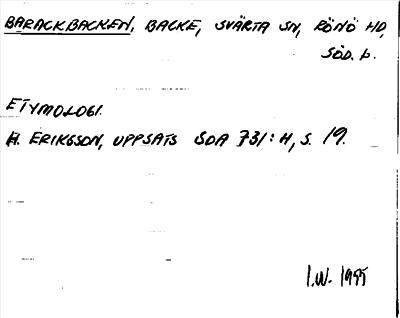 BARACKBACKEN, BACKE, SVÄRTA SN, RÖNÖ HD,
SÖD. Þ.
ETYMOLOGI.
H. ERIKSSON, UPPSATS SOA 731:H, S. 19.
I.W. 1995